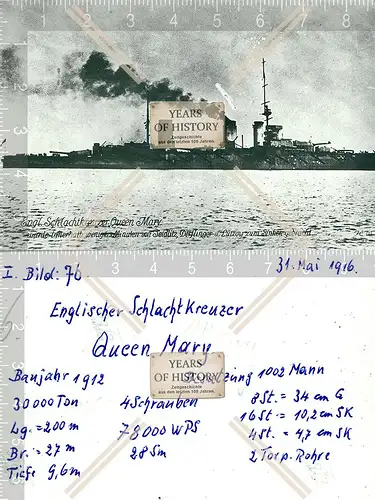 1 2 3 4 5 6 7 8
YEARS
OF HISTORY
Zeitgeschichte
aus den letzten 100 Jahren.
Engl. Schlachtkreuzer Queen Mary
3 4 5 6 7 8
I. Bild: 76.
31. Mai 1916.
Englischer Schlachtkreuzer
Queen Mary
YEARS
OF HISTORY
Zeitgeschichte
aus den letzten 100 Jahren.
Baujahr 1912
Besatzung 1002 Mann
30000 Ton
4 Schrauben
8 St. = 34 cm G
Lg. = 200 m
78000 WPS
16 St. = 10,2 cm SK
Br. = 27 m
28 Sm
4 St. = 4,7 cm SK
Tiefe 9,6 m
2 Torp. Rohre